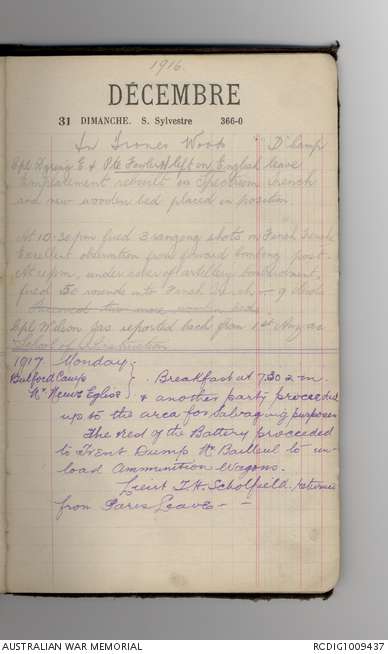 1916.
DÉCEMBRE
31 DIMANCHE. S. Sylvestre 366-0
In Trones Wood "D" Camp
Cpl Dyring E & Pte Fowler H left on English leave
Emplacement rebuilt in Spectrum Trench
and new wooden bed placed in position
At 10.30pm fired 3 ranging shots on Finch Trench
Excellent observation from forward bombing post.
At 11pm, under cover of artillery bombardment,
fired 50 rounds into Finch Trench — 9
two more wooden beds
Cpl Wilson Jas reported back from 1st Anzac
School of Instruction
1917 Monday.
Bulford Camp } . Breakfast at 7.30 a.m.
Nr Neuve Eglise } & another party proceeded
up to the area for Salvaging purposes
The rest of the Battery proceeded
to Trent Dump Nr Bailleul to un-
load Ammunition Wagons.
Lieut T.H. Scholfield. returned
from Paris Leave — —
AUSTRALIAN WAR MEMORIAL
RCDIG1009437